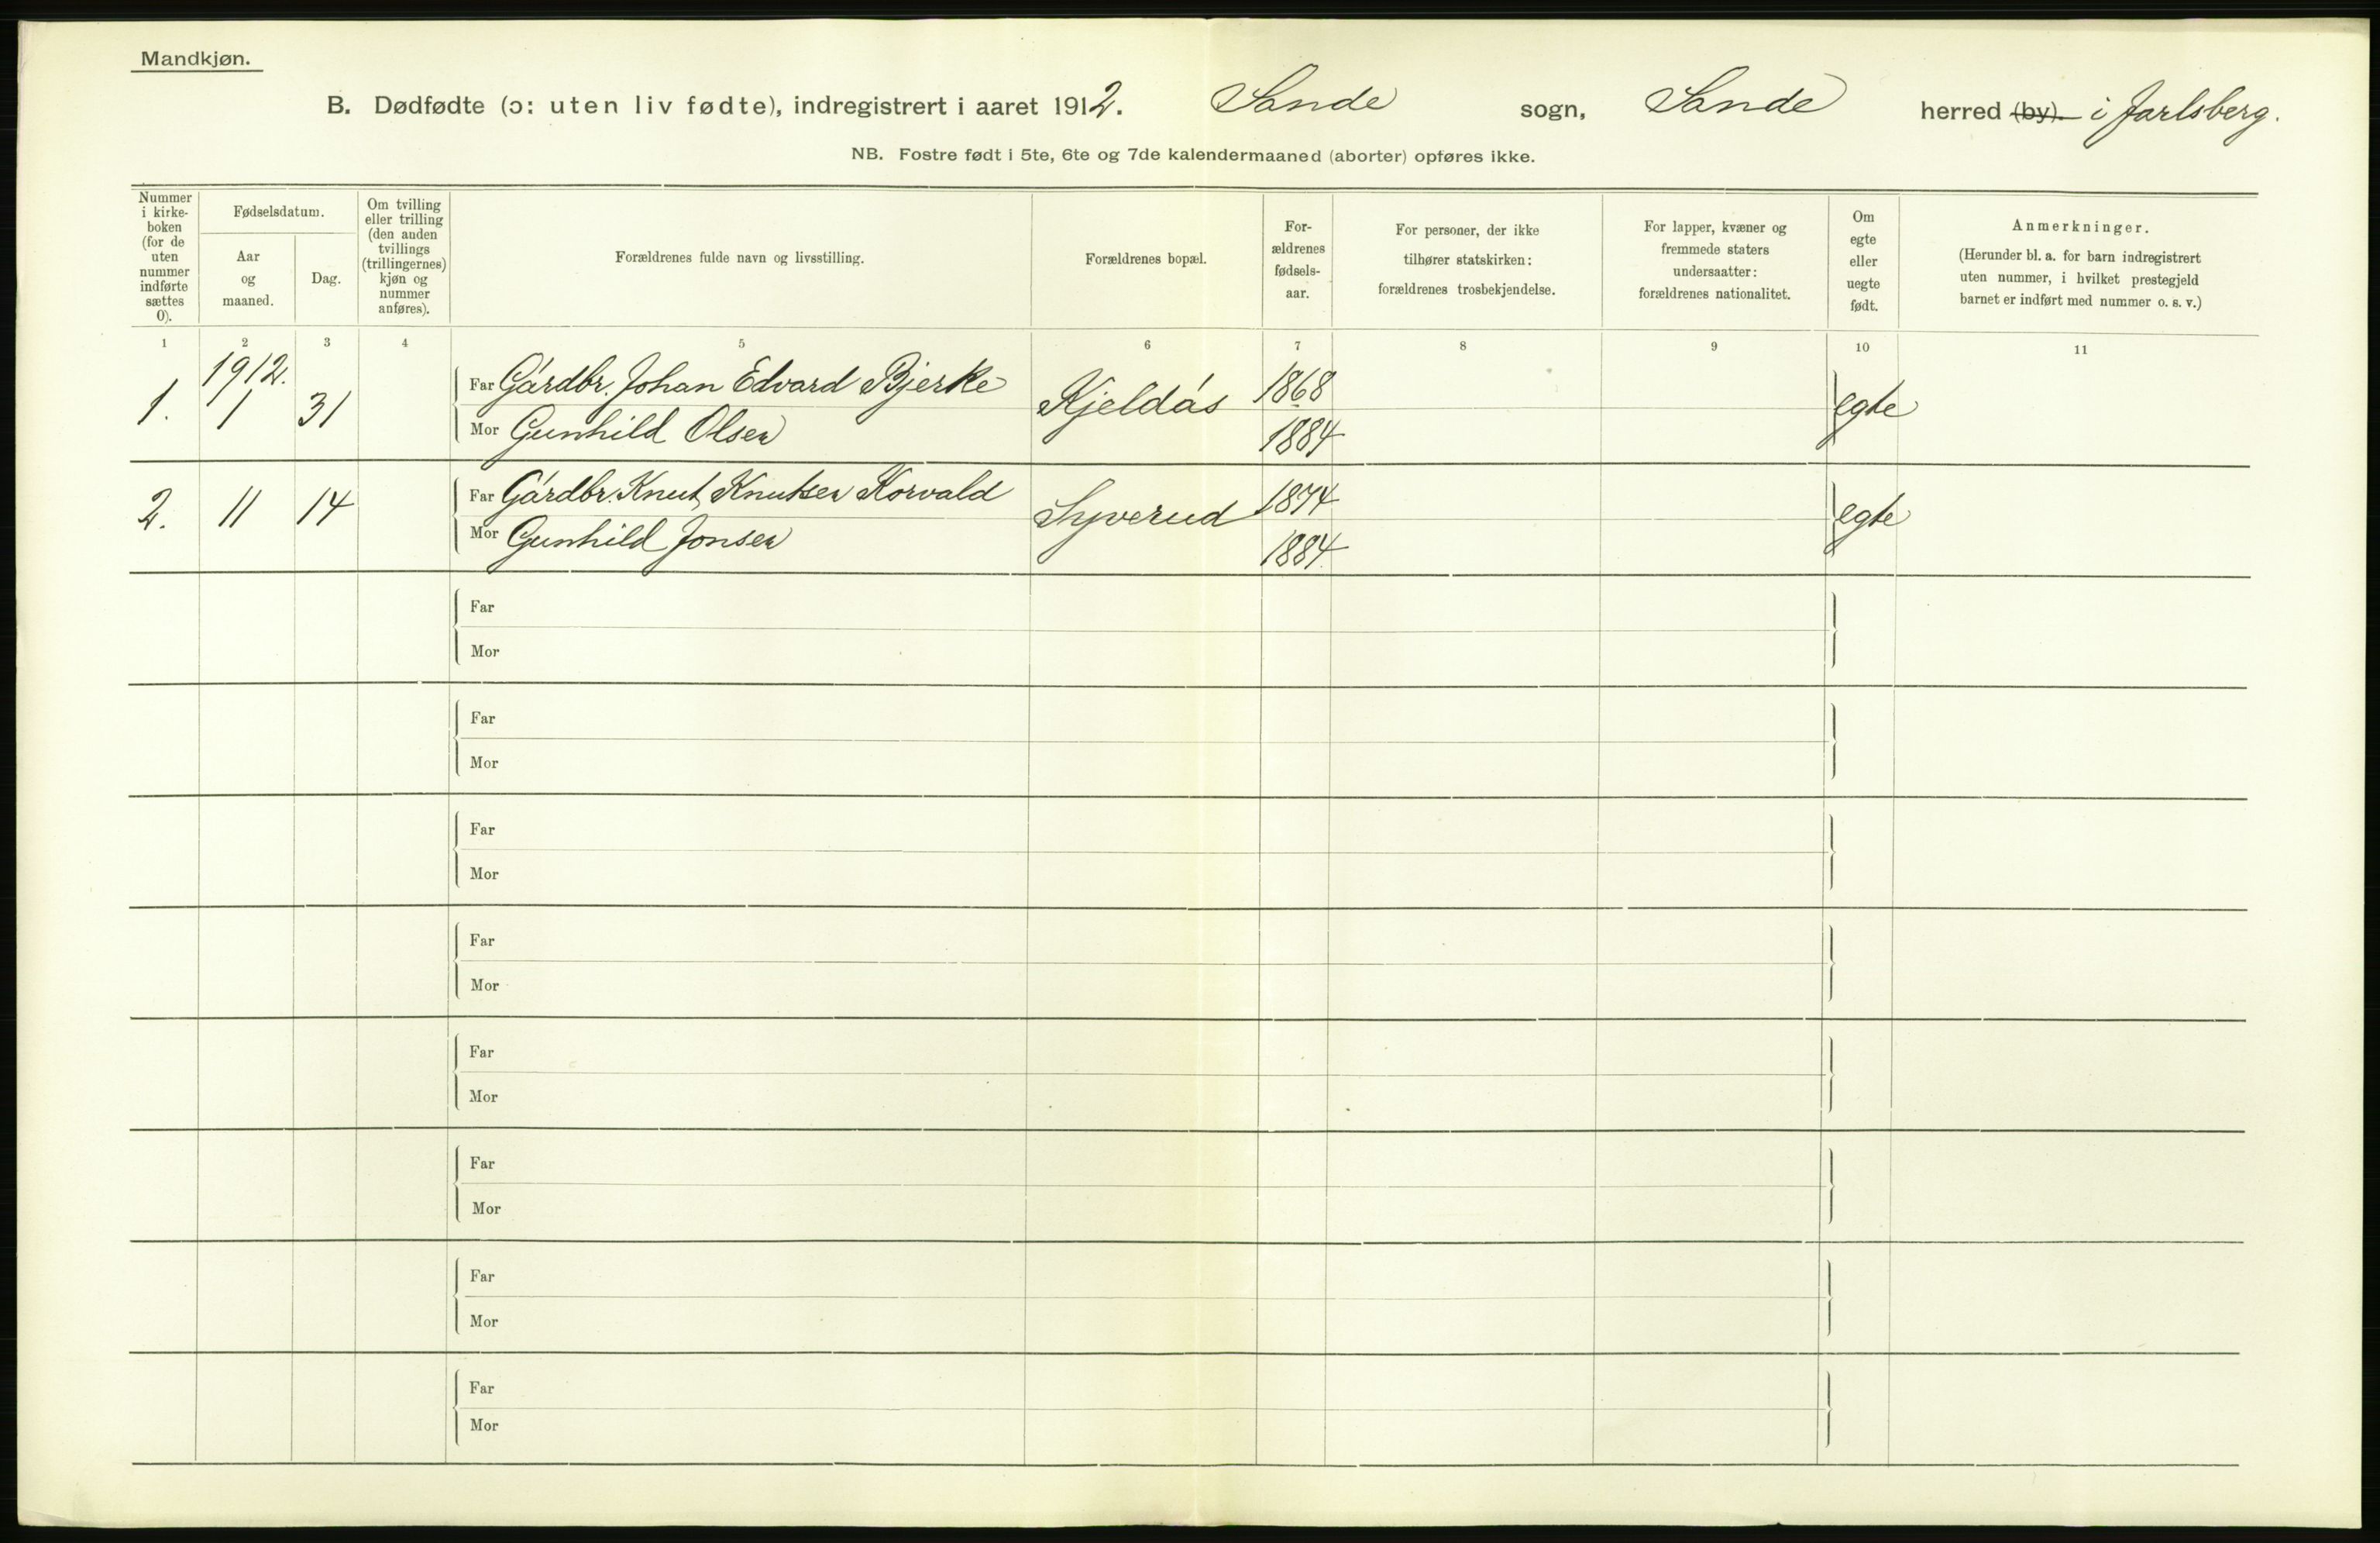 Mandkjøn.
B. Dødfødte (ɔ: uten liv fødte), indregistrert i aaret 1912. Sande sogn, Sande herred (by). i Jarlsberg.
NB. Fostre født i 5te, 6te og 7de kalendermaaned (aborter) opføres ikke.
Nummer
i kirke-
boken
(for de
uten
nummer
indførte
sættes
0).
Fødselsdatum.
Aar
og
maaned.
Dag.
Om tvilling
eller trilling
(den anden
tvillings
(trillingernes)
kjøn og
nummer
anføres).
Forældrenes fulde navn og livsstilling.
Forældrenes bopæl.
For-
ældrenes
fødsels-
aar.
For personer, der ikke
tilhører statskirken:
forældrenes trosbekjendelse.
For lapper, kvæner og
fremmede staters
undersaatter:
forældrenes nationalitet.
Om
egte
eller
uegte
født.
Anmerkninger.
(Herunder bl. a. for barn indregistrert
uten nummer, i hvilket prestegjeld
barnet er indført med nummer o. s. v.)
1 2 3 4 5 6 7 8 9 10 11
1912.
1. 1 31 Far Gårdbr. Johan Edvard Bjerke Kjeldås 1868 egte
Mor Gunhild Olsen 1884
2. 11 14 Far Gårdbr. Knut Knutsen Korvald Syverud 1874 egte
Mor Gunhild Jonsen 1884
Far
Mor
Far
Mor
Far
Mor
Far
Mor
Far
Mor
Far
Mor
Far
Mor
Far
Mor